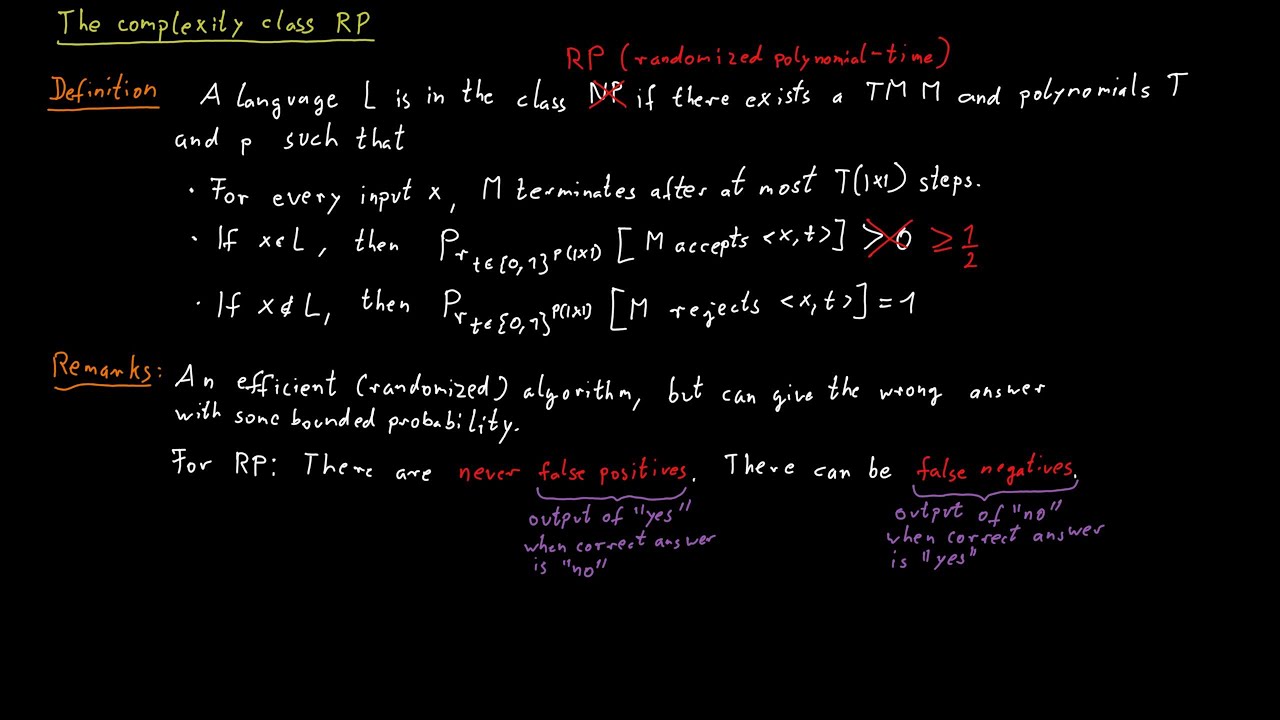 The complexity class RP
RP (randomized polynomial-time)
Definition A language L is in the class NP if there exists a TM M and polynomials T
and p such that
· For every input x, M terminates after at most T(|x|) steps.
· If x∈L, then Pr_{t∈{0,1}^{p(|x|)}} [M accepts <x,t>] > 0 ≥ 1/2
· If x∉L, then Pr_{t∈{0,1}^{p(|x|)}} [M rejects <x,t>] = 1
Remarks: An efficient (randomized) algorithm, but can give the wrong answer
with some bounded probability.
For RP: There are never false positives. There can be false negatives.
output of "yes"
when correct answer
is "no"
output of "no"
when correct answer
is "yes"